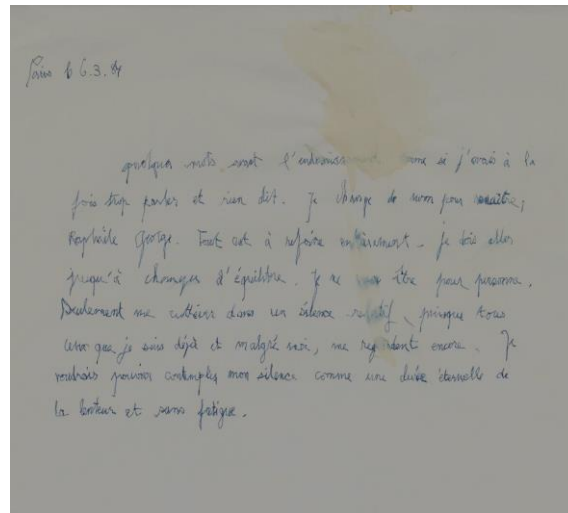 Paris le 6.3.84
quelques mots avant l'endormissement comme si j'avais à la
fois trop parler et rien dit. Je change de nom pour renaître;
Raphaële George. Tout est à refaire entièrement - je dois aller
jusqu'à changer d'équilibre. Je ne veux être pour personne.
Seulement me cueillir dans un silence relatif, puisque tous
ceux que je suis déjà et malgré moi, me regardent encore. Je
voudrais pouvoir contempler mon silence comme une durée éternelle de
la lenteur et sans fatigue.